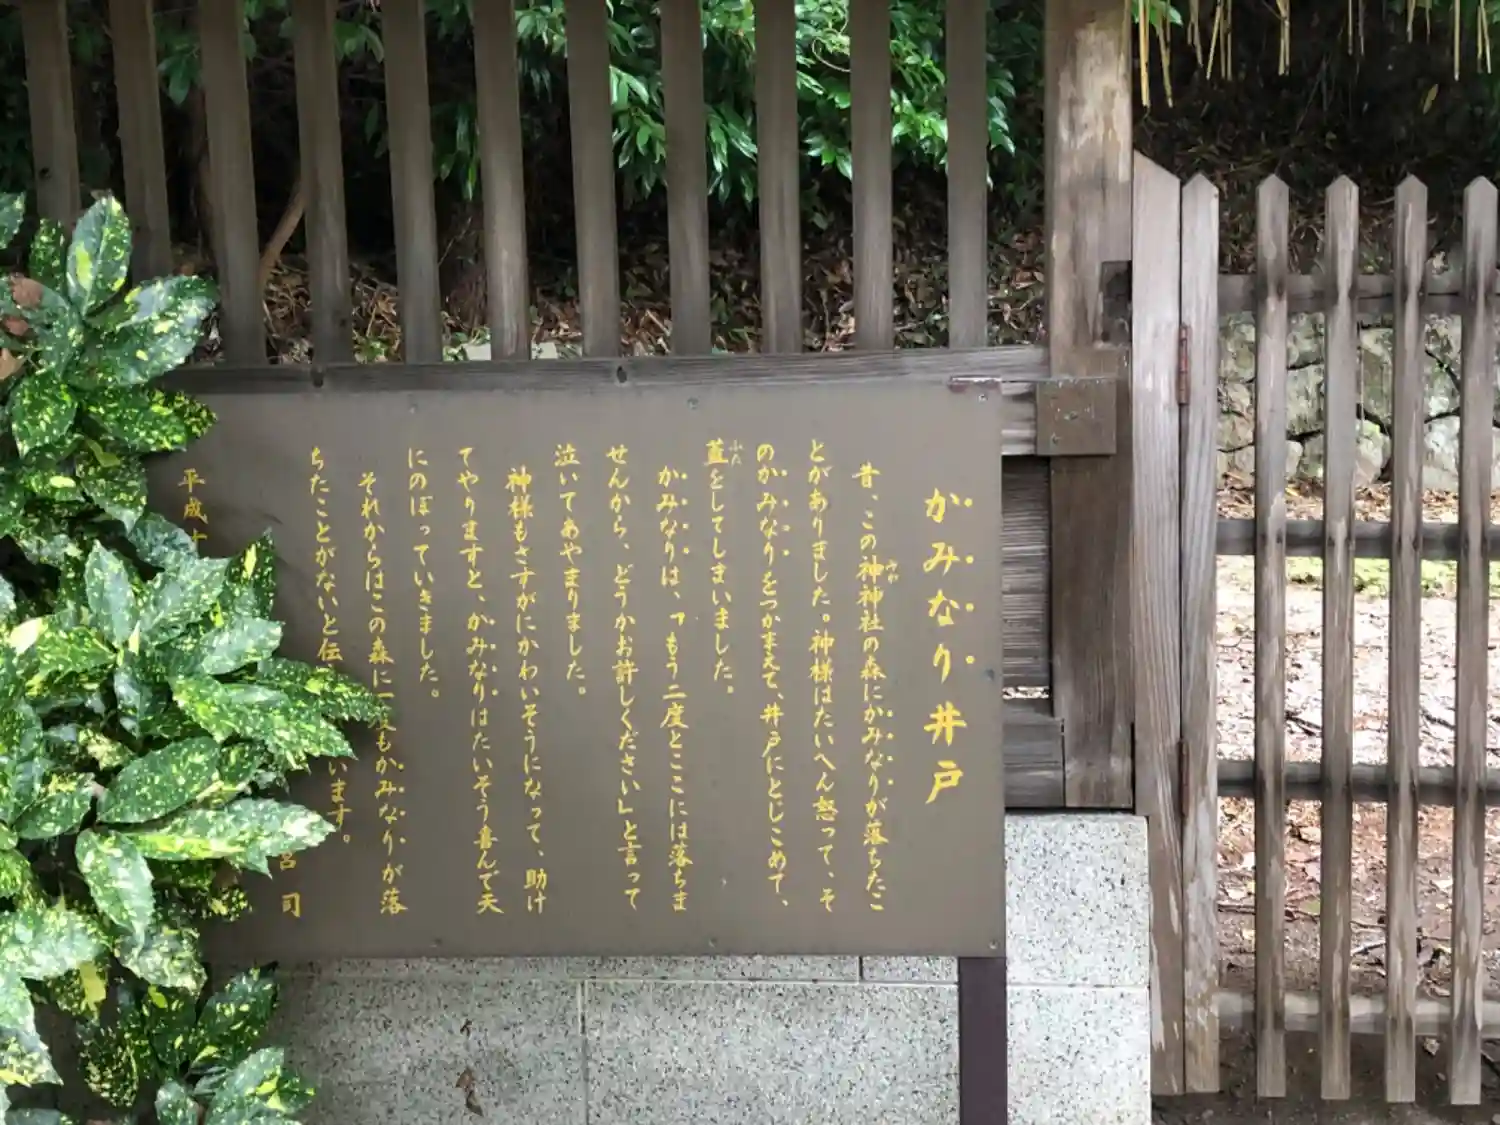 かみなり井戸
昔、この神神社の森にかみなりが落ちたこ
とがありました。神様はたいへん怒って、そ
のかみなりをつかまえて、井戸にとじこめて、
蓋をしてしまいました。
かみなりは、「もう二度とここには落ちま
せんから、どうかお許しください」と言って
泣いてあやまりました。
神様もさすがにかわいそうになって、助け
てやりますと、かみなりはたいそう喜んで天
にのぼっていきました。
それからはこの森に一度もかみなりが落
ちたことがないと伝います。
平成十
宮司